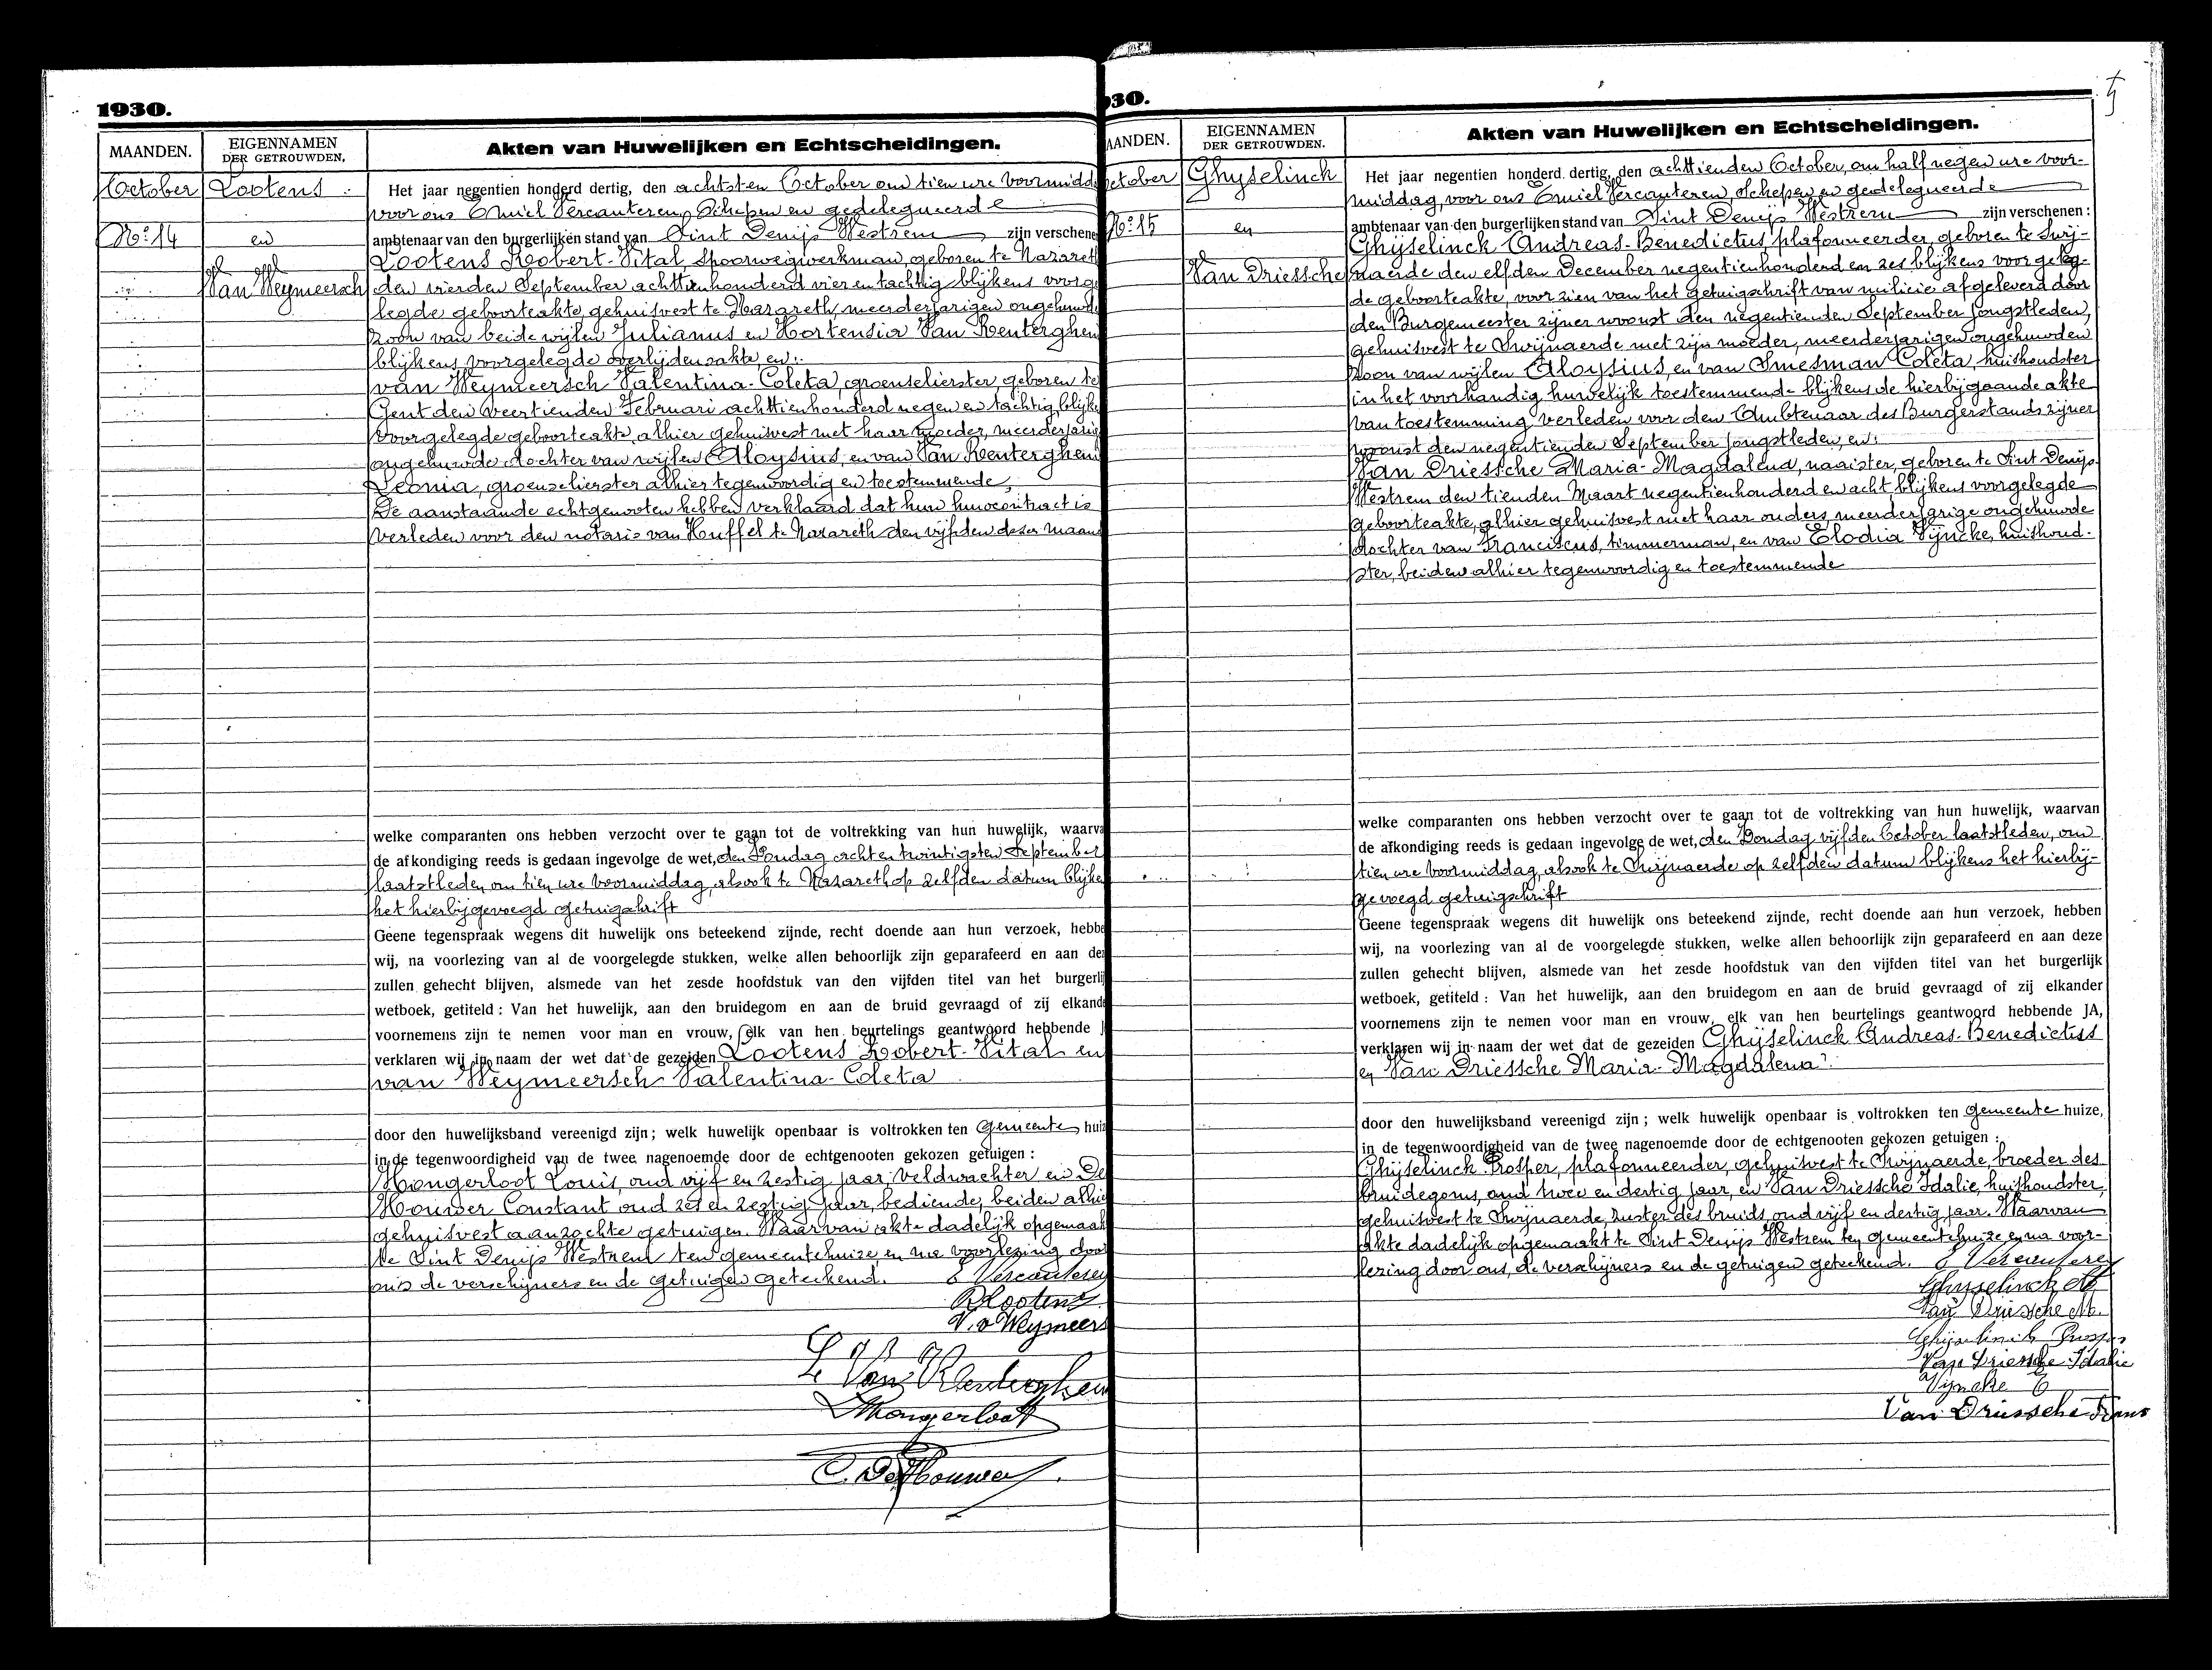 1930.
MAANDEN.
EIGENNAMEN
DER GETROUWDEN.
Akten van Huwelijken en Echtscheidingen.
October
Lootens
No. 14
en
Van Weymeersch
Het jaar negentien honderd dertig, den achtsten October om tien ure voormidd
voor ons Emiel Vercauteren, Schepen en gedelegueerde
ambtenaar van den burgerlijken stand van Sint Denijs Westrem zijn verschene
Lootens Robert-Vital spoorwegwerkman, geboren te Nazareth
den vierden September achttienhonderd vier en tachtig blijkens voorge
legde geboorteakte, gehuisvest te Nazareth, meerderjarigen ongehuwde
zoon van beide wijlen Julianus en Hortensia Van Renterghem
blijkens voorgelegde overlijdensakte, en:
van Weymeersch Valentina-Coleta, groenselierster, geboren te
Gent den veertienden Februari achttienhonderd negen en tachtig blijke
voorgelegde geboorteakte, alhier gehuisvest met haar moeder, meerderjarig
ongehuwde dochter van wijlen Aloysius, en van Van Renterghem
Leonia, groenselierster alhier tegenwoordig en toestemmende,
De aanstaande echtgenooten hebben verklaard dat hun huwcontract is
verleden voor den notaris van Houffel te Nazareth den vijfden dezer maand
welke comparanten ons hebben verzocht over te gaan tot de voltrekking van hun huwelijk, waarva
de afkondiging reeds is gedaan ingevolge de wet, den Zondag acht en twintigsten September
laatstleden om tien ure voormiddag, alsook te Nazareth op zelfden datum blijke
het hierbijgevoegd getuigschrift
Geene tegenspraak wegens dit huwelijk ons beteekend zijnde, recht doende aan hun verzoek, hebbe
wij, na voorlezing van al de voorgelegde stukken, welke allen behoorlijk zijn geparafeerd en aan de
zullen gehecht blijven, alsmede van het zesde hoofdstuk van den vijfden titel van het burgerlij
wetboek, getiteld : Van het huwelijk, aan den bruidegom en aan de bruid gevraagd of zij elkande
voornemens zijn te nemen voor man en vrouw, elk van hen beurtelings geantwoord hebbende J
verklaren wij in naam der wet dat de gezeiden Lootens Robert-Vital en
van Weymeersch Valentina-Coleta
door den huwelijksband vereenigd zijn ; welk huwelijk openbaar is voltrokken ten Gemeente huiz
in de tegenwoordigheid van de twee nagenoemde door de echtgenooten gekozen getuigen :
Hongerloot Louis, oud vijf en zestig jaar, veldwachter en De
Houwer Constant oud zes en zestig jaar, bediende, beiden alhie
gehuisvest aanzochte getuigen. Waarvan akte dadelijk opgemaak
te Sint Denijs Westrem ten gemeentehuize en na voorlezing door
ons de verschijners en de getuigen geteekend. E Vercauteren
R Lootens
V. v Weymeers
L Van Renterghem
L Hongerloot
C. De Houwer
30.
AANDEN.
EIGENNAMEN
DER GETROUWDEN.
Akten van Huwelijken en Echtscheidingen.
October
Ghyselinck
No. 15
en
Van Driessche
Het jaar negentien honderd dertig, den achttienden October, om half negen ure voor-
middag, voor ons Emiel Vercauteren, Schepen en gedelegueerde
ambtenaar van den burgerlijken stand van Sint Denijs Westrem zijn verschenen :
Ghijselinck Andreas-Benedictus, plafonneerder, geboren te Swij-
naerde den elfden December negentienhonderd en zes blijkens voorgeleg-
de geboorteakte, voorzien van het getuigschrift van milicie afgeleverd door
den Burgemeester zijner woonst den negentienden September jongstleden,
gehuisvest te Swijnaerde met zijn moeder, meerderjarigen ongehuwden
zoon van wijlen Aloysius, en van Smesman Coleta, huishoudster
in het voorhandig huwelijk toestemmend blijkens de hierbijgaande akte
van toestemming verleden voor den Ambtenaar des Burgerstands zijner
woonst den negentienden September jongstleden, en:
Van Driessche Maria-Magdalena, naaister, geboren te Sint Denijs-
Westrem den tienden Maart negentienhonderd en acht blijkens voorgelegde
geboorteakte, alhier gehuisvest met haar ouders, meerderjarige ongehuwde
dochter van Franciscus, timmerman, en van Elodia Vijncke, huishoud-
ster, beiden alhier tegenwoordig en toestemmende
welke comparanten ons hebben verzocht over te gaan tot de voltrekking van hun huwelijk, waarvan
de afkondiging reeds is gedaan ingevolge de wet, den Zondag vijfden October laatstleden, om
tien ure voormiddag, alsook te Swijnaerde op zelfden datum blijkens het hierbij-
gevoegd getuigschrift
Geene tegenspraak wegens dit huwelijk ons beteekend zijnde, recht doende aan hun verzoek, hebben
wij, na voorlezing van al de voorgelegde stukken, welke allen behoorlijk zijn geparafeerd en aan deze
zullen gehecht blijven, alsmede van het zesde hoofdstuk van den vijfden titel van het burgerlijk
wetboek, getiteld : Van het huwelijk, aan den bruidegom en aan de bruid gevraagd of zij elkander
voornemens zijn te nemen voor man en vrouw, elk van hen beurtelings geantwoord hebbende JA,
verklaren wij in naam der wet dat de gezeiden Ghijselinck Andreas-Benedictus
en Van Driessche Maria-Magdalena
door den huwelijksband vereenigd zijn ; welk huwelijk openbaar is voltrokken ten Gemeente huize,
in de tegenwoordigheid van de twee nagenoemde door de echtgenooten gekozen getuigen :
Ghijselinck Prosper, plafonneerder, gehuisvest te Swijnaerde, broeder des
bruidegoms, oud twee en dertig jaar, en Van Driessche Idalie, huishoudster,
gehuisvest te Swijnaerde, zuster des bruids, oud vijf en dertig jaar. Waarvan
akte dadelijk opgemaakt te Sint Denijs Westrem ten gemeentehuize en na voor-
lezing door ons, de verschijners en de getuigen geteekend. E Vercauteren
Ghyselinck A
Van Driessche M.
Ghijselinck Prosper
Van Driessche Idalie
Vijncke E
Van Driessche Frans